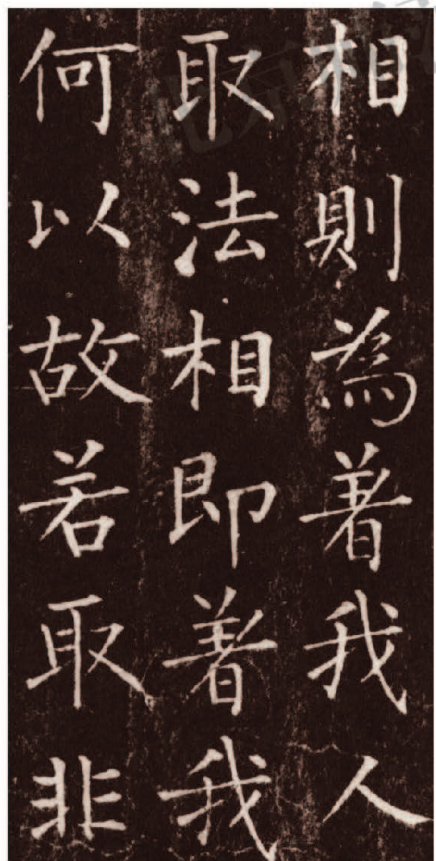 相則為著我人
取法相即著我
何以故若取非